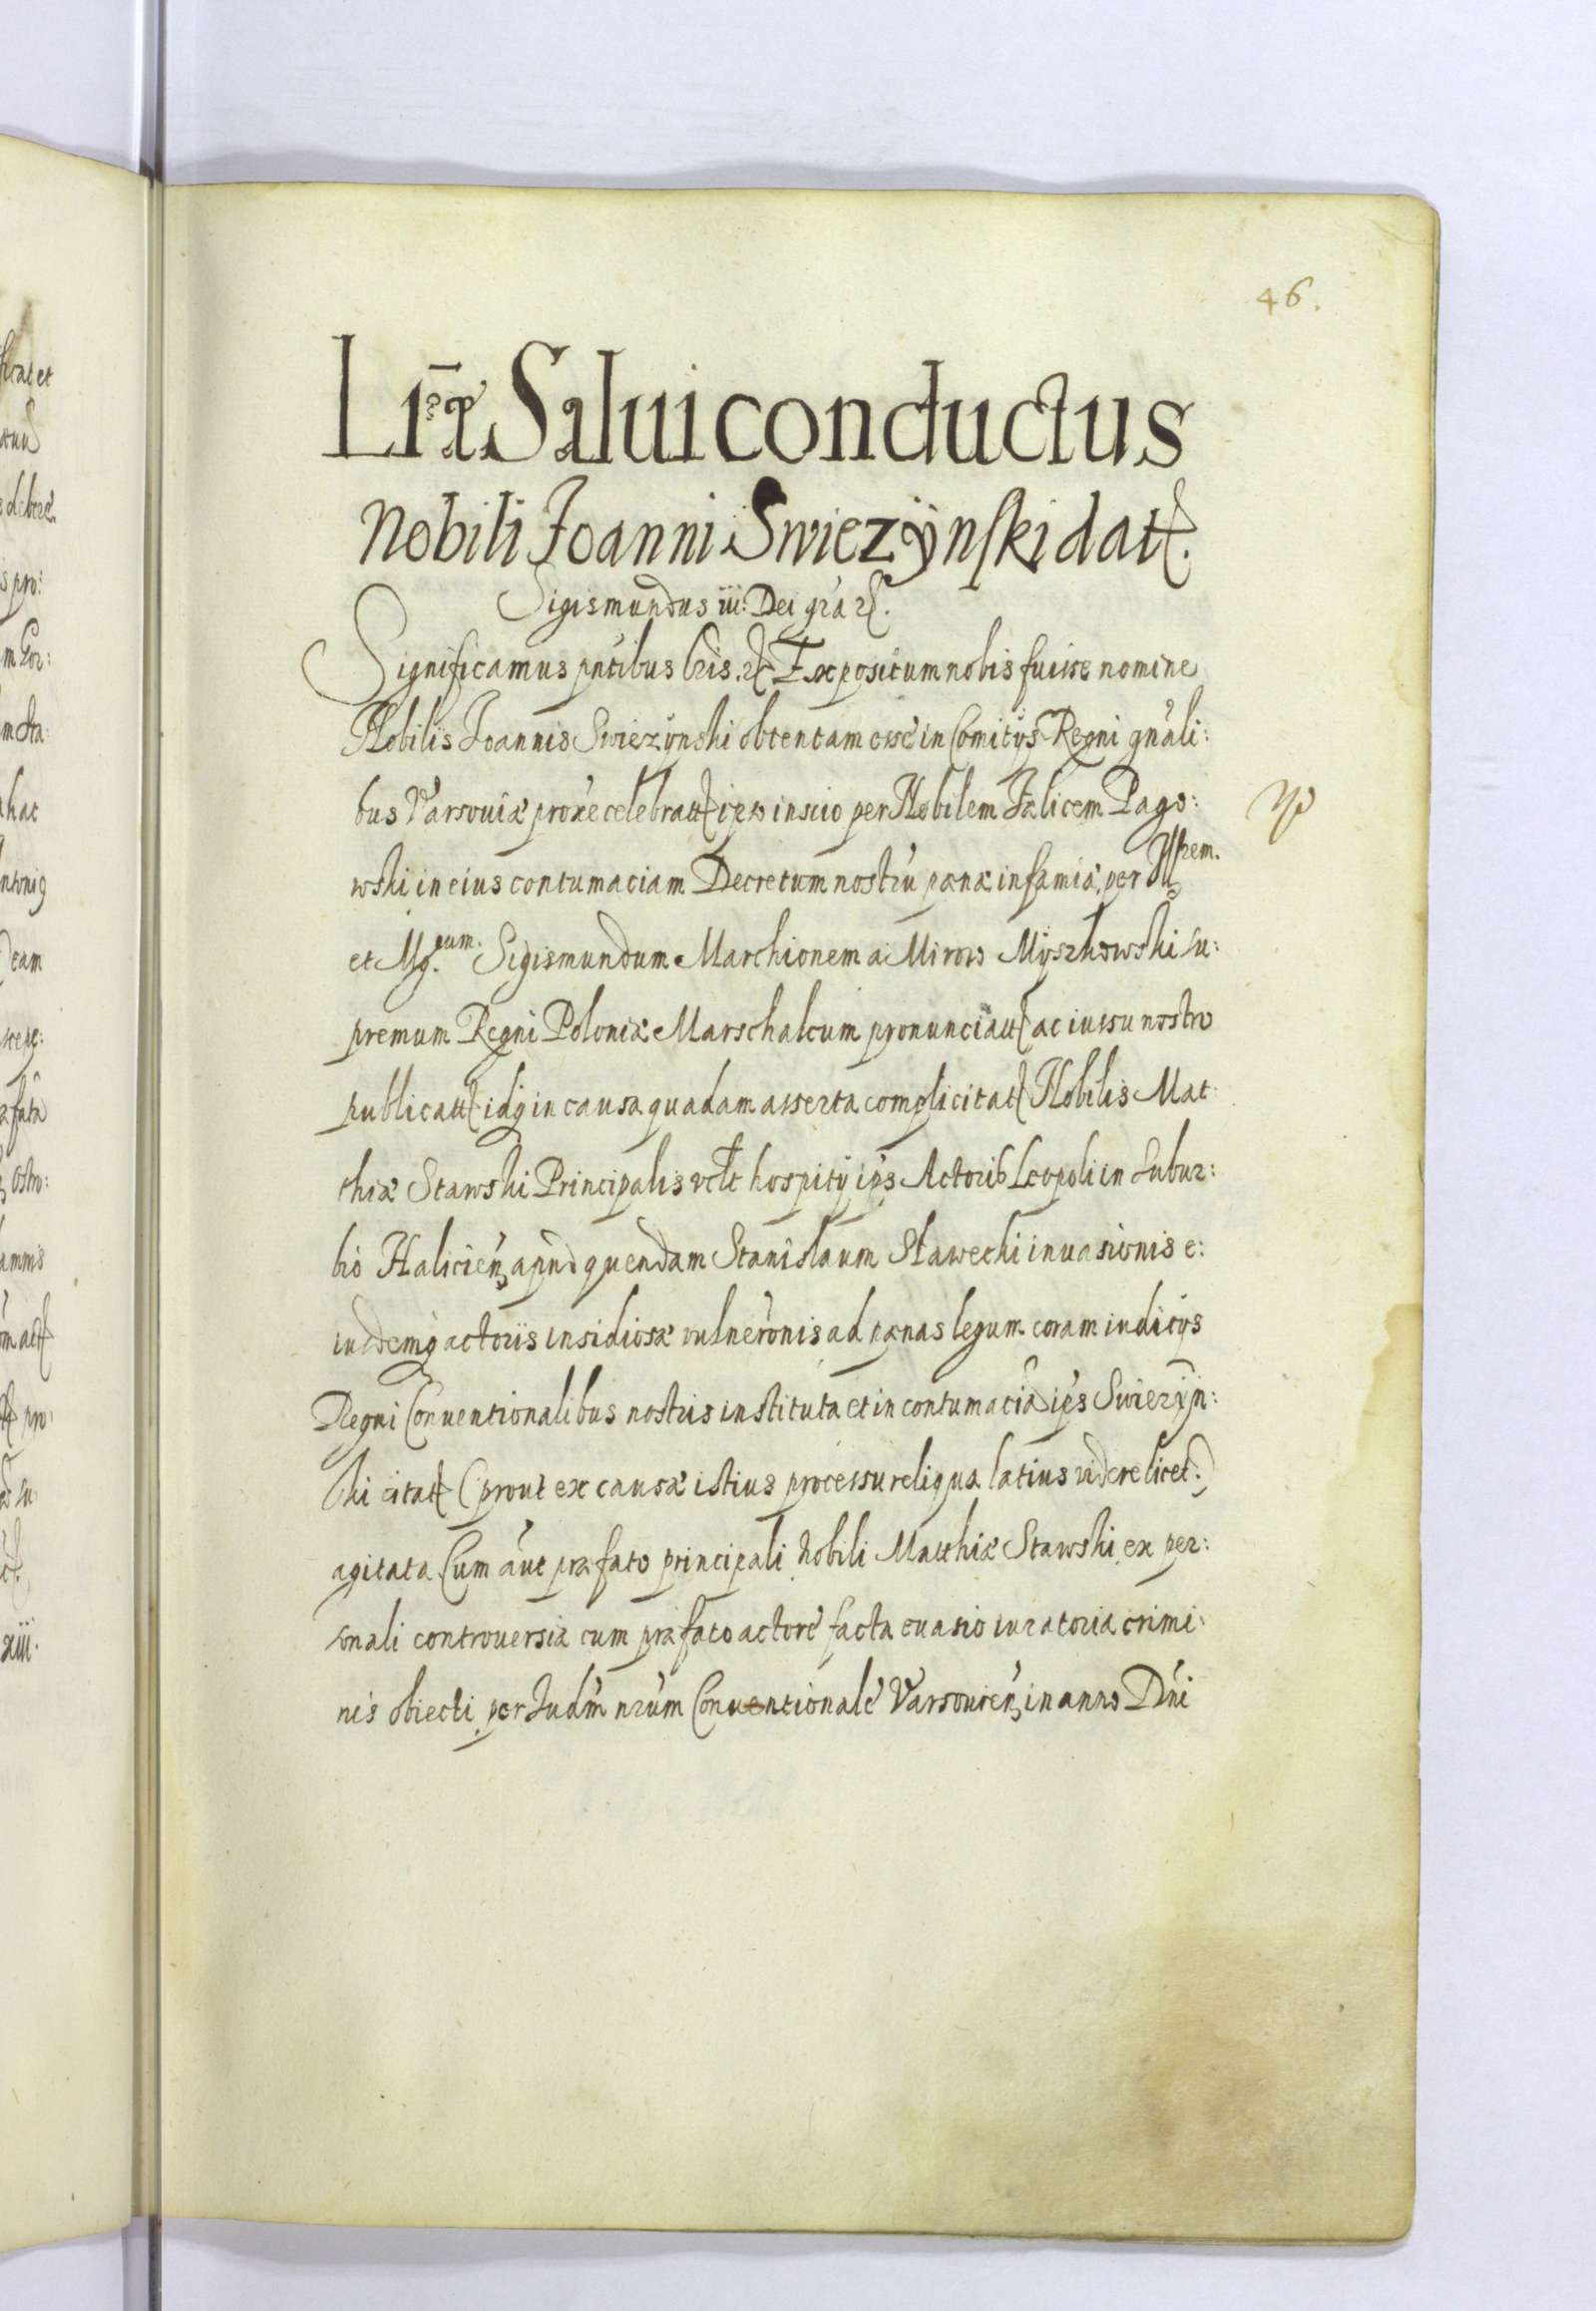 46.
Lr̄æ Salui conductus
Nobili Joanni Swiezÿnski dat.
Sigismundus iii: Dei gr̃a
Significamus pn̄tibus lr̃is. Expositum nobis fuisse nomine
Nobilis Joannis Swiezÿnski obtentam esse in Comitÿs Regni gn̄ali:
bus Varsouiæ proxe celebratt ipso inscio per Nobilem Fælicem Pago:
wski in eius contumaciam Decretum nostrū pænæ infamiæ, per Ill͏rem.
et Mg.cum. Sigismundum Marchionem a Mirow Mÿszkowski su:
premum Regni Poloniæ Marschalcum pronunciatt ac iussu nostro
publicatt idq in causa quadam asserta complicitat Nobilis Mat
thiæ Stawski Principalis hospitÿ ips Actoris Leopoli in Subur:
bio Halicien, apud quendam Stanislaum Stawecki inuasionis e:
iusdemq actoris insidiosæ vulnerõnis ad pænas legum coram iudicÿs
Regni Conuentionalibus nostris instituta et in contumaciã ips Swiezÿn:
ski citat (prout ex causæ istius processu reliqua latius videre licet.)
agitata. Cum aūt præfato principali Nobili Matthiæ Stawski ex per:
sonali controuersia cum præfato actore facta euasio iuratoria crimi:
nis obiecti per Judm̄ nr̃um Conuentionale Varsouien, in anno Dn̄i